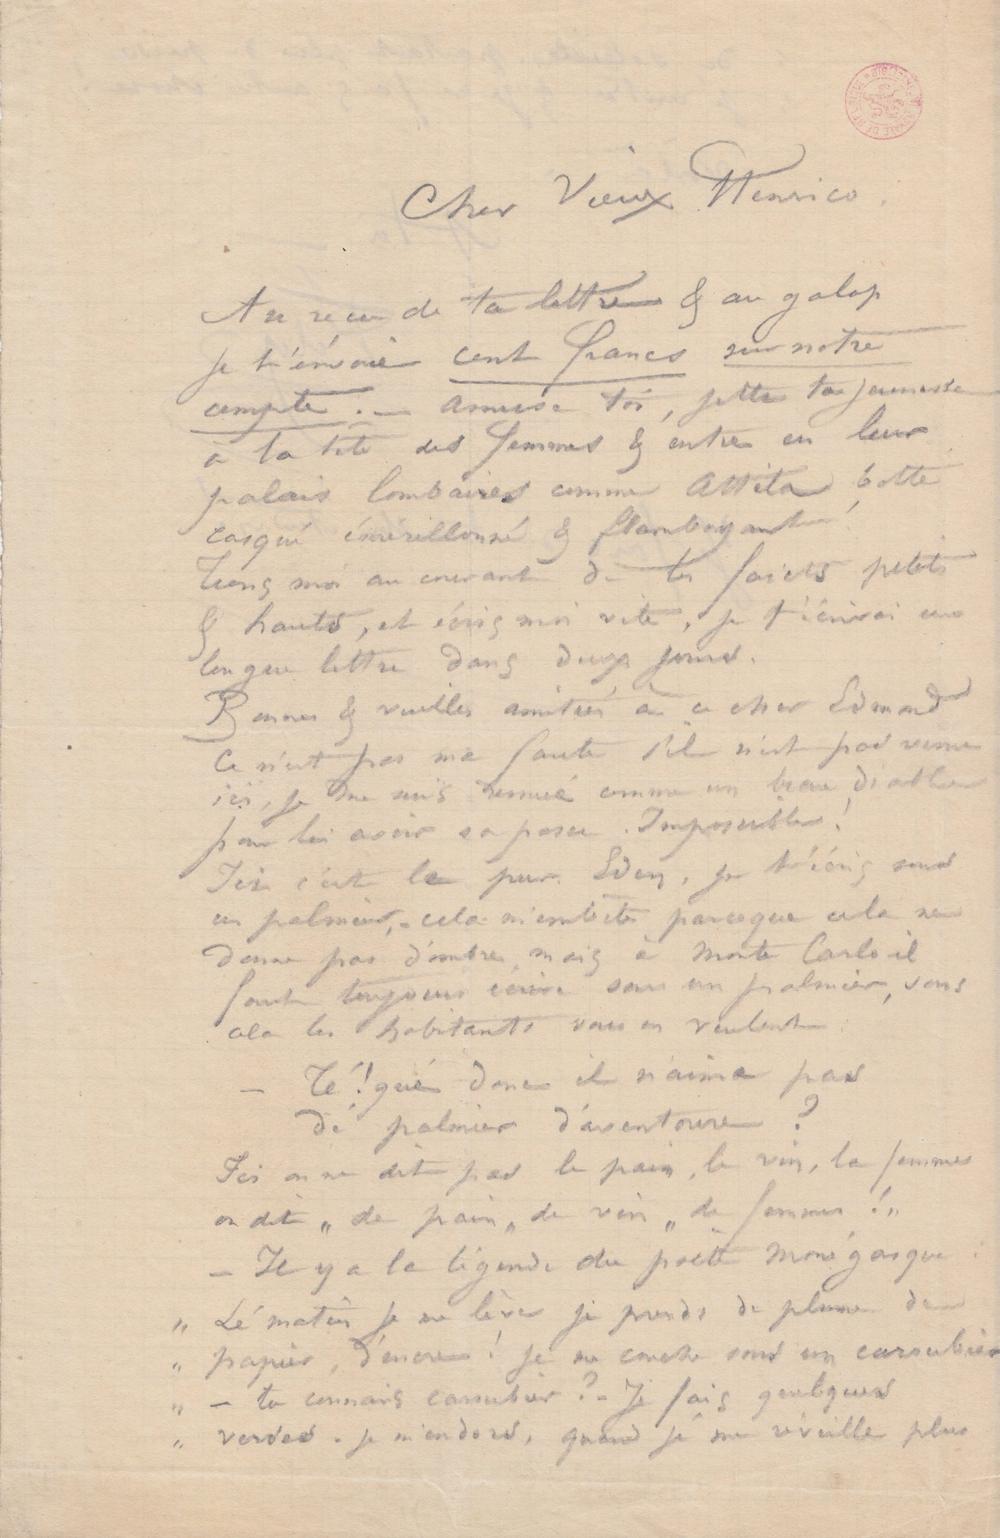 Cher Vieux Henrico.
Au reçu de ta lettre & au galop
je t'envoie cent francs sur notre
compte. — Amuse toi, jette ta jeunesse
à la tête des femmes & entre en leur
palais lombaires comme Attila botté
casqué émérillonné & flamboyant!
Tiens moi au courant de tes faicts petits
& hauts, et écris moi vite, je t'écrirai une
longue lettre dans deux jours.
Bonnes & vieilles amitiés à ce cher Edmond
ce n'est pas ma faute s'il n'est pas venu
ici, je me suis remué comme un beau diable
pour lui avoir sa passe. Impossible!
Ici c'est le pur Eden, je t'écris sous
un palmier, - cela m'embête parceque cela ne
donne pas d'ombre, mais à Monte Carlo il
faut toujours écrire sous un palmier, sans
cela les habitants vous en veulent.
— Té! qué donc il n'aime pas
dé palmier d'aventoure?
Ici on ne dit pas le pain, le vin, la femmes
on dit „ de pain „ de vin „ de femmes! „
— Il y a la légende du poète Monégasque.
„ Lé matin je me lève je prends de plume de
„ papier, d'encre! je me couche sous un caroubier
„ — tu connais caroubier? - Je fais quelques
„ verses. je m'endors, quand jé me réveille plus